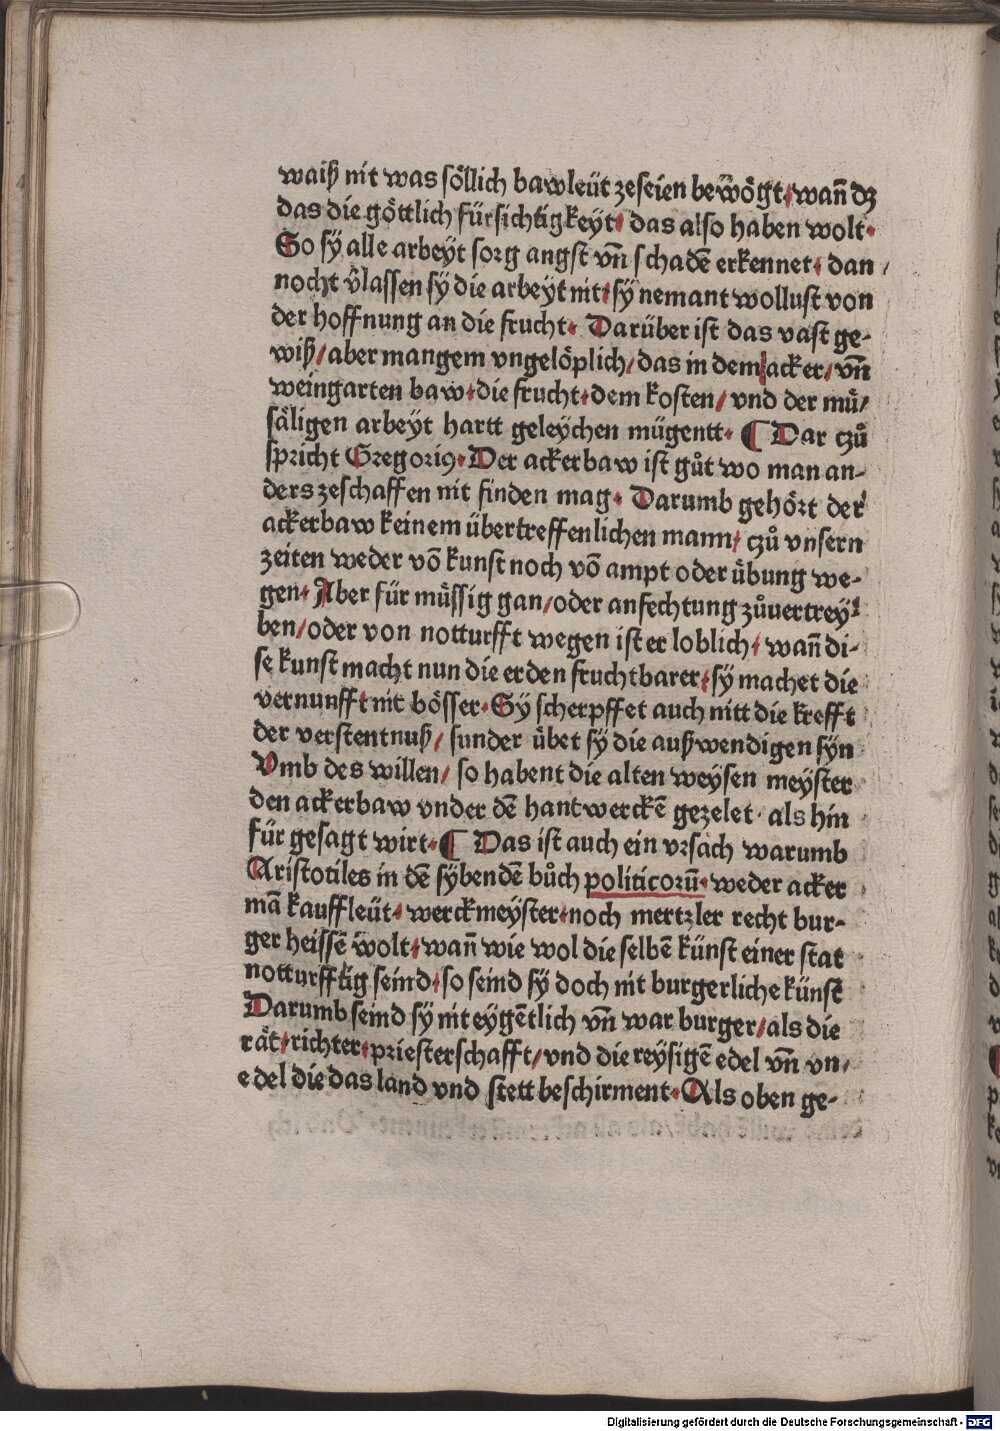 waiß nit was söllich bawleüt zeseien bewögt / wann dz
das die göttlich fürsichtigkeyt / das also haben wolt ·
So sÿ alle arbeyt sorg angst vñ schadẽ erkennet / dan /
nocht v̈lassen sÿ die arbeyt nit / sÿ nemant wollust von
der hoffnung an die frucht · Darüber ist das vast ge-
wiß / aber mangem vngelöplich / das in dem acker / vñ
weingarten baw · die frucht · dem kosten / vnd der mü /
säligen arbeyt hartt geleÿchen mügentt · ¶ Dar czů
spricht Gregoriꝰ · Der ackerbaw ist gůt wo man an-
ders zeschaffen nit finden mag · Darumb gehört der
ackerbaw keinem übertreffenlichen mann / czů vnsern
zeiten weder võ kunst noch võ ampt oder übung we-
gen · Aber für müssig gan / oder anfechtung zůuertrey-
ben / oder von notturfft wegen ist er loblich / wañ di-
se kunst macht nun die erden fruchtbarer / sÿ machet die
vernunfft nit bösser · Sÿ scherpffet auch nitt die krefft
der verstentnuß / sunder übet sÿ die außwendigen sÿn
Vmb des willen / so habent die alten weysen meyster
den ackerbaw vnder dẽ hantwerckẽ gezelet · als hin
für gesagt wirt · ¶ Das ist auch ein vrsach warumb
Aristotiles in dẽ sÿbendẽ bůch politicorũ · weder acker
mã kauffleüt · werckmeyster · noch mertzler recht bur-
ger heissẽ wolt / wañ wie wol die selbẽ künst einer stat
notturfftig seind · so seind sÿ doch nit burgerliche künst
Darumb seind sÿ nit eygẽtlich vñ war burger / als die
rät / richter · priesterschafft / vnd die reysigẽ edel vñ vn /
edel die das land vnd stett beschirment · Als oben ge-
Digitalisierung gefördert durch die Deutsche Forschungsgemeinschaft - DFG